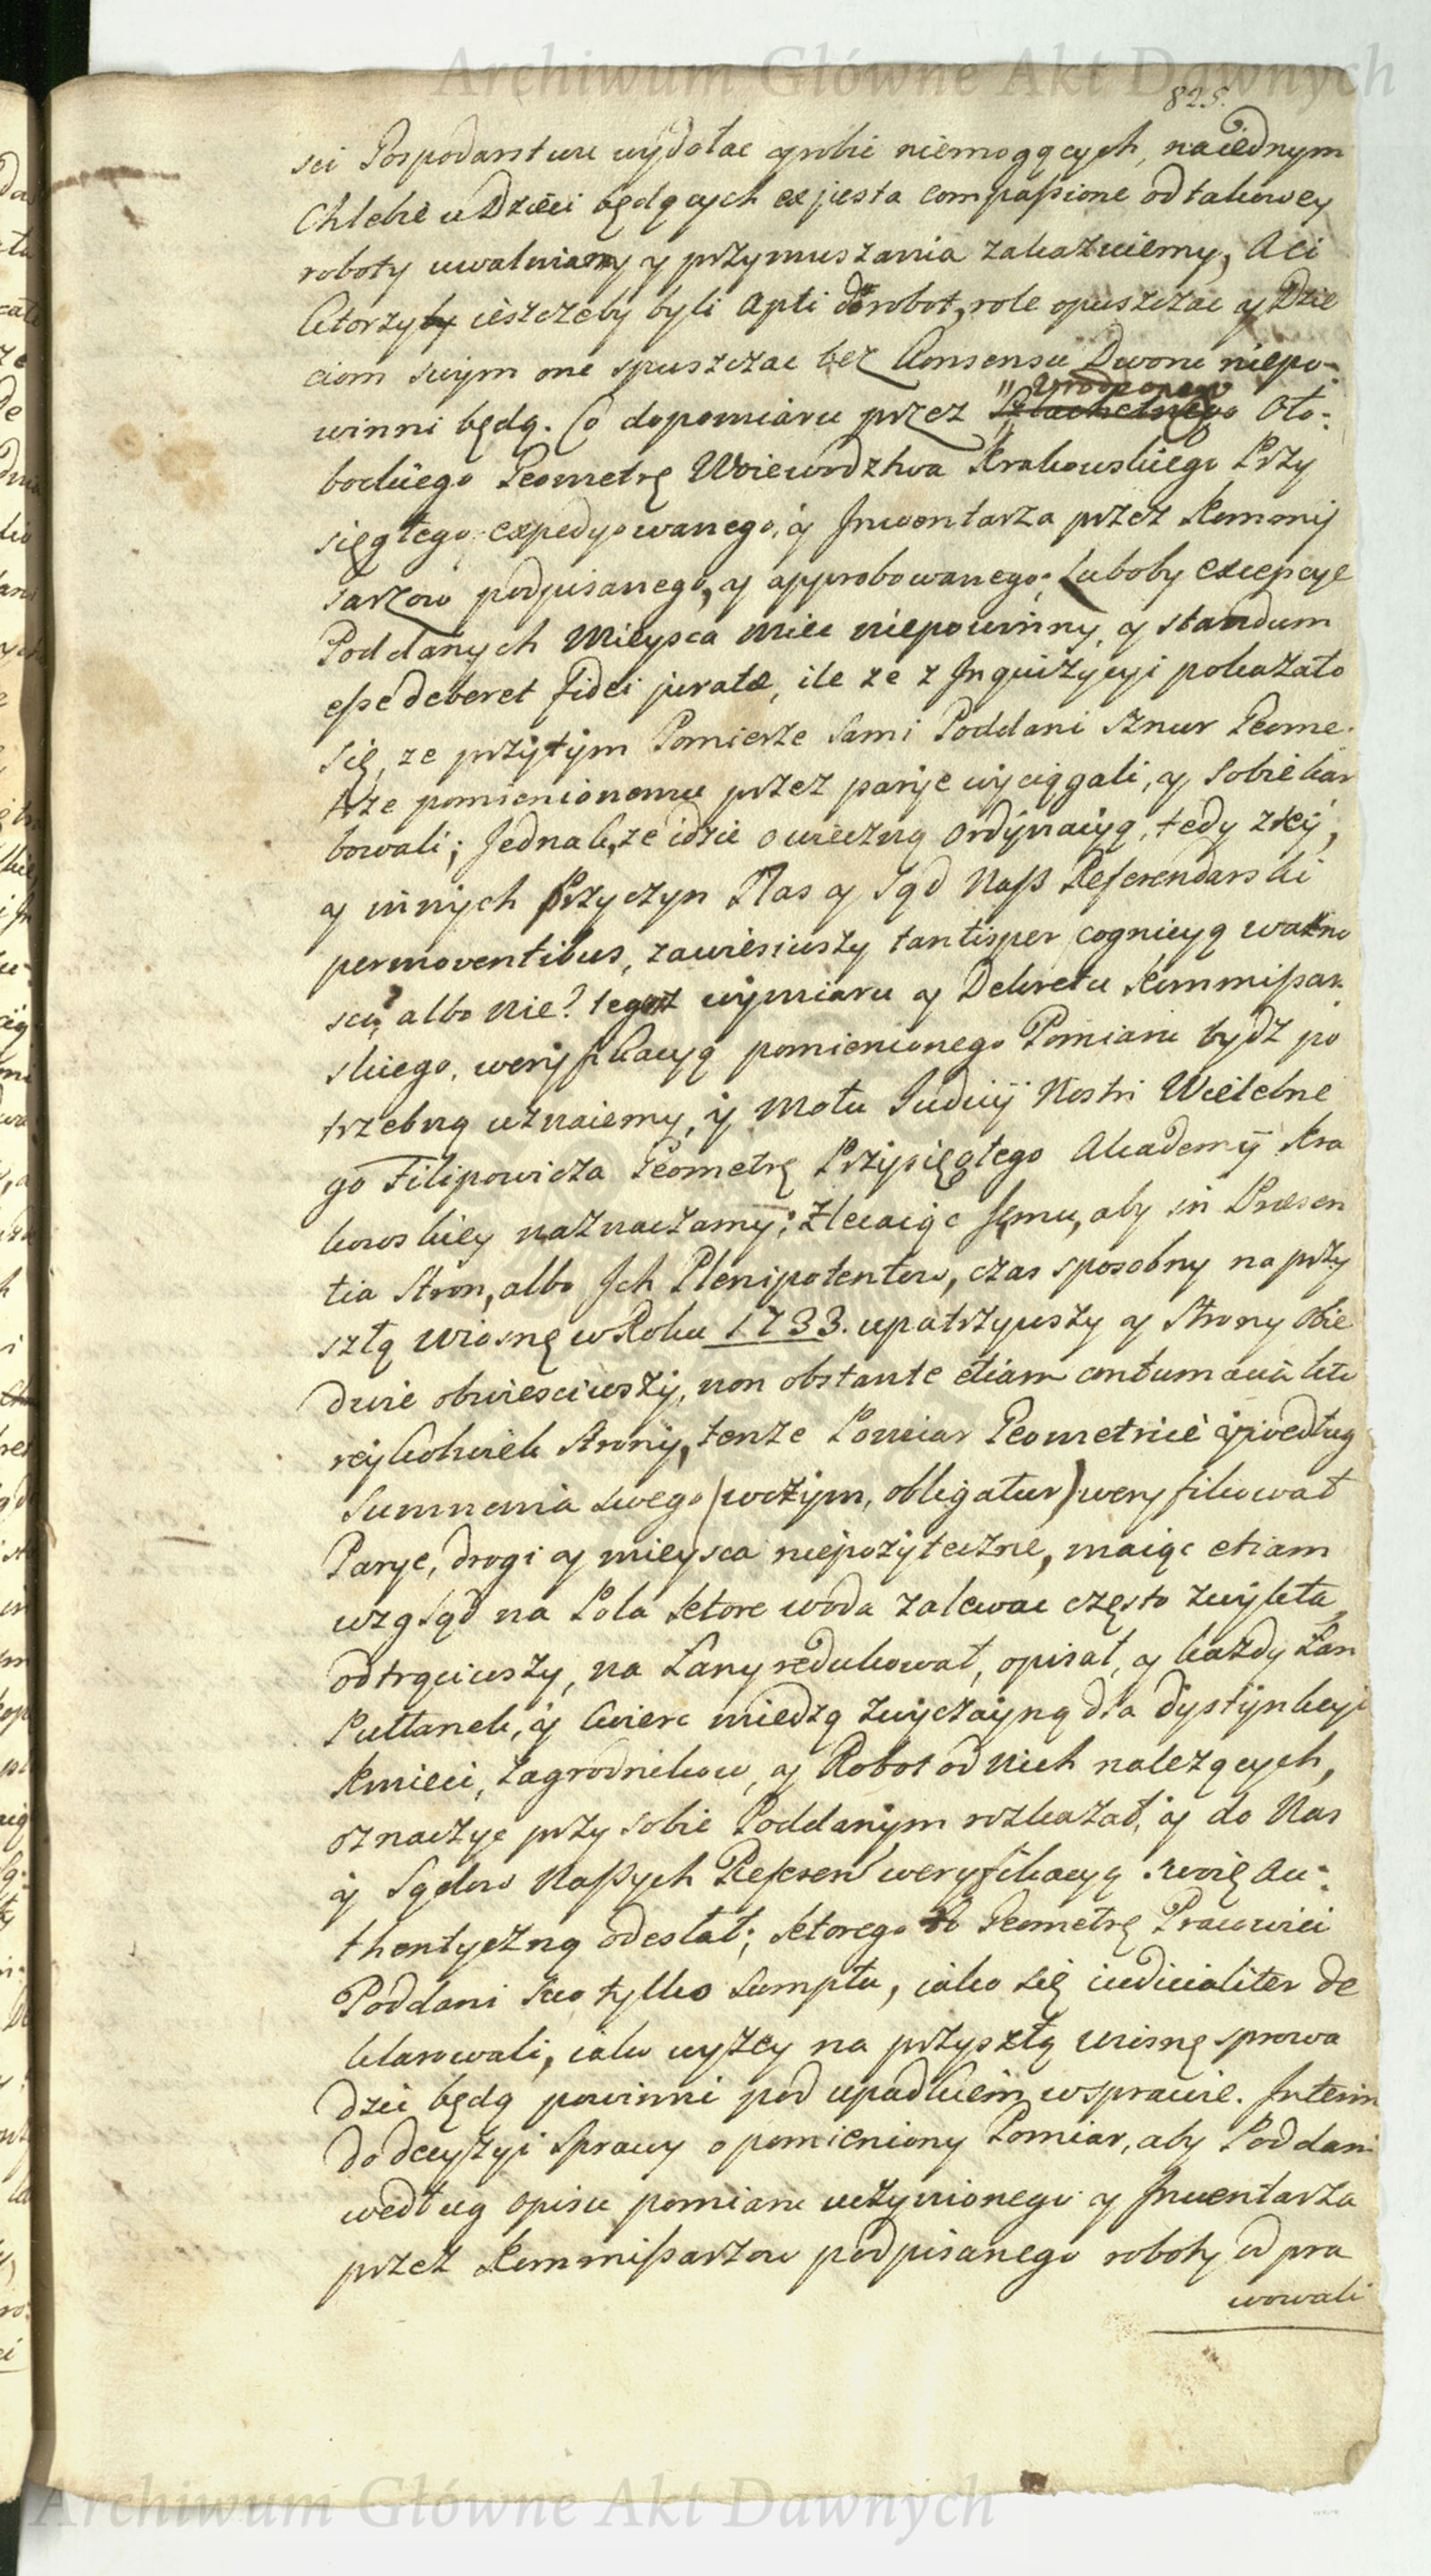 Archiwum Główne Akt Dawnych
825.
sci Gospodarstwu wydołac y robic niemogących, na iednym
Chlebie u Dzieci będących ex justa compaſsione od takowey
roboty uwalniamy y przymuszania zakazuiemy, A ci
ktorzyby ieszczeby byli apti do robot, role opuszczac y Dzie
ciom swym one spuszczac bez Consensu Dworu niepo-
winni będą. Co do pomiaru przez Szlachetnego " Urodzonego Oło-
bockiego Geometrę Woiewodztwa Krakowskiego Przy
sięgłego expedyowanego, y Inwentarza przez Kommi
sarzow podpisanego, y approbowanego; Luboby excepcye
Poddanych Mieysca miec niepowinny, y standum
eſse deberet fidei juratæ, ile ze z Inquizycyi pokazało
się, ze przytym Pomierze sami Poddani sznur Geome-
trze pomienionemu przez parye wyciągali, y sobie kar
bowali; Jednak, ze idzie o wieczną ordynacyą, tedy z tey,
y innych Przyczyn Nas y Sąd Naſz Referendarski
permoventibus, zawiesiwszy tantisper cognicyą wazno
sci, albo nie? tegoz wymiaru y Dekretu Kommiſsar
skiego, weryfikacyą pomienionego Pomiaru bydz po
trzebną uznaiemy, y Motu Judicij Nostri Wielebne
go Filipowicza Geometrę Przysięgłego Akademij Kra
kowskiey naznaczamy; Zlecaiąc Jemu, aby in Præsen
tia Stron, albo Ich Plenipotentow, czas sposobny na przy
szłą wiosnę w Roku 1733. upatrzywszy y Strony Obie
dwie obwiesciwszy, non obstante etiam contumacia kto
reykolwiek Strony, tenze Pomiar Geometricè y podług
Sumnenia swego (w czym, obligatur) weryfikował
Parye, drogi y mieysca niepozyteczne, maiąc etiam
wzgląd na Pola ktore woda zalewac często zwykła,
odtrąciwszy, na Łany redukował, opisał, y kazdy Łan
Pułłanek, y Cwierc miedzą zwyczayną dla dystynkcyi
Kmieci, Zagrodnikow, y Robot od nich nalezących,
oznaczyc przy sobie Poddanym rozkazał, y do Nas
y Sądow Naſzych Referen weryfikacyą swoię Au-
thentyczną odesłał; ktorego to Geometrę Pracowici
Poddani swo tylko sumptu, iako się iudicialiter de
klarowali, iako wyzey na przyszłą wiosnę sprowa
dzic będą powinni pod upadkiem w sprawie. Interim
do decyzyi sprawy o pomieniony Pomiar, aby Poddani
według opisu pomiaru uczynionego y Inwentarza
przez Kommiſsarzow podpisanego roboty odpra
wowali
Archiwum Główne Akt Dawnych